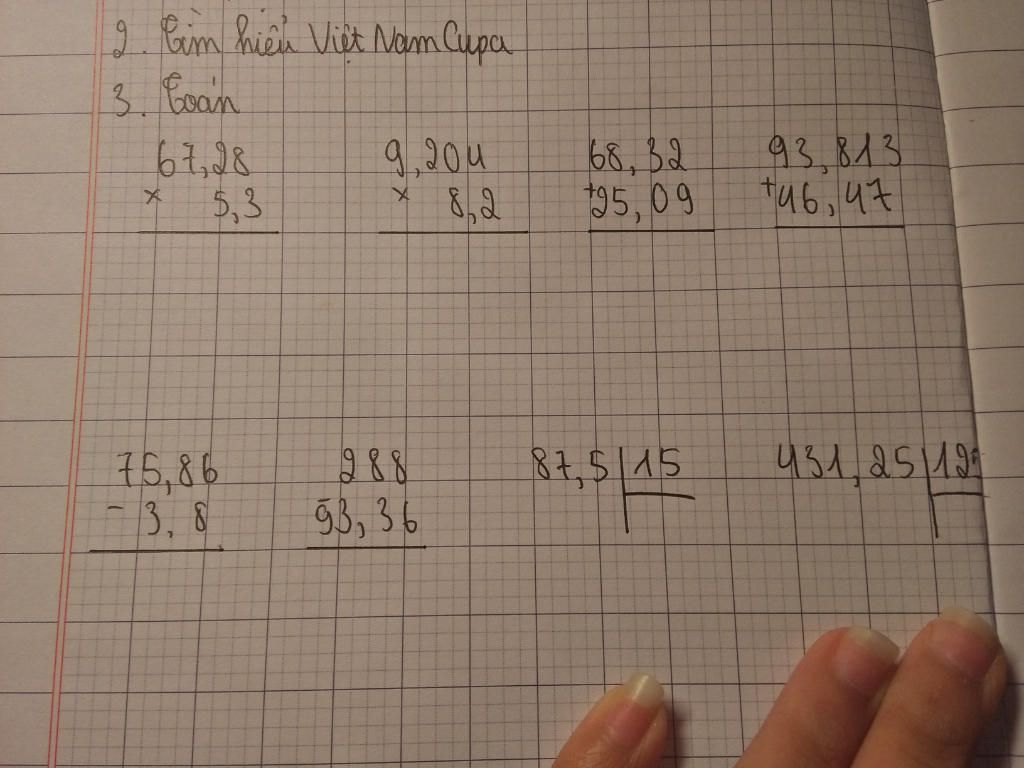 2. Tìm hiểu Việt Nam Cupa
3. Toán
67,28 9,204 68,32 93,813
× 5,3 × 8,2 +25,09 +46,47
75,86 288 87,5 15 431,25
- 3,8 93,36